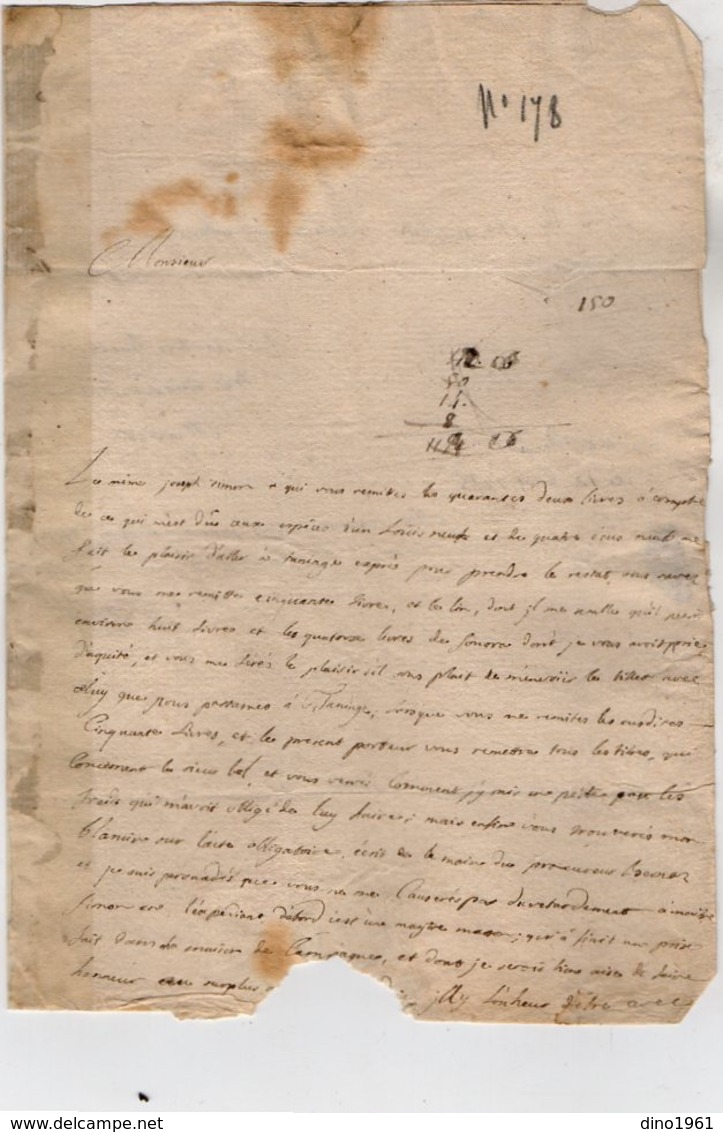 No 178
Monsieur
150
12. 06
50
14.
8
06
Le même joseph simon a qui vous remites les quarantes deux livres à compte
de ce qui m'est dûe aux espèces d'un Loüis neufs et de quatre écus neufs me
fait le plaisir d'aller à taninge exprès pour prendre le restat, vous savez
que vous me remittes cinquante livres, et les lin, dont jl me semble qu'il
environ huit livres et les quatorze livres de dont je vous avoit priez
d'aquité, et vous me ferés le plaisir s'il vous plait de m'envoier les billet avec
celuy que nous passames à Taninge, lorsque vous me remites les susdites
Cinquante livres, et le present porteur vous remettra tous les titres, qui
Concernent le sieur bel, et vous verrés Comment j'y suis une peste pour les
fraix qui m'avoit obligé de luy faire; mais enfin vous trouverés mon
sur l'acte obligatoire, écrit de la main du procureur
et je suis persuadés que vous ne me Causerés pas du retardement
simon l'expediant d'abord c'est une
fait dans la maison de Campagne, et dont je serois bien aise de faire
honneur au surplus j'ay l'onheur d'etre avec
dino1961